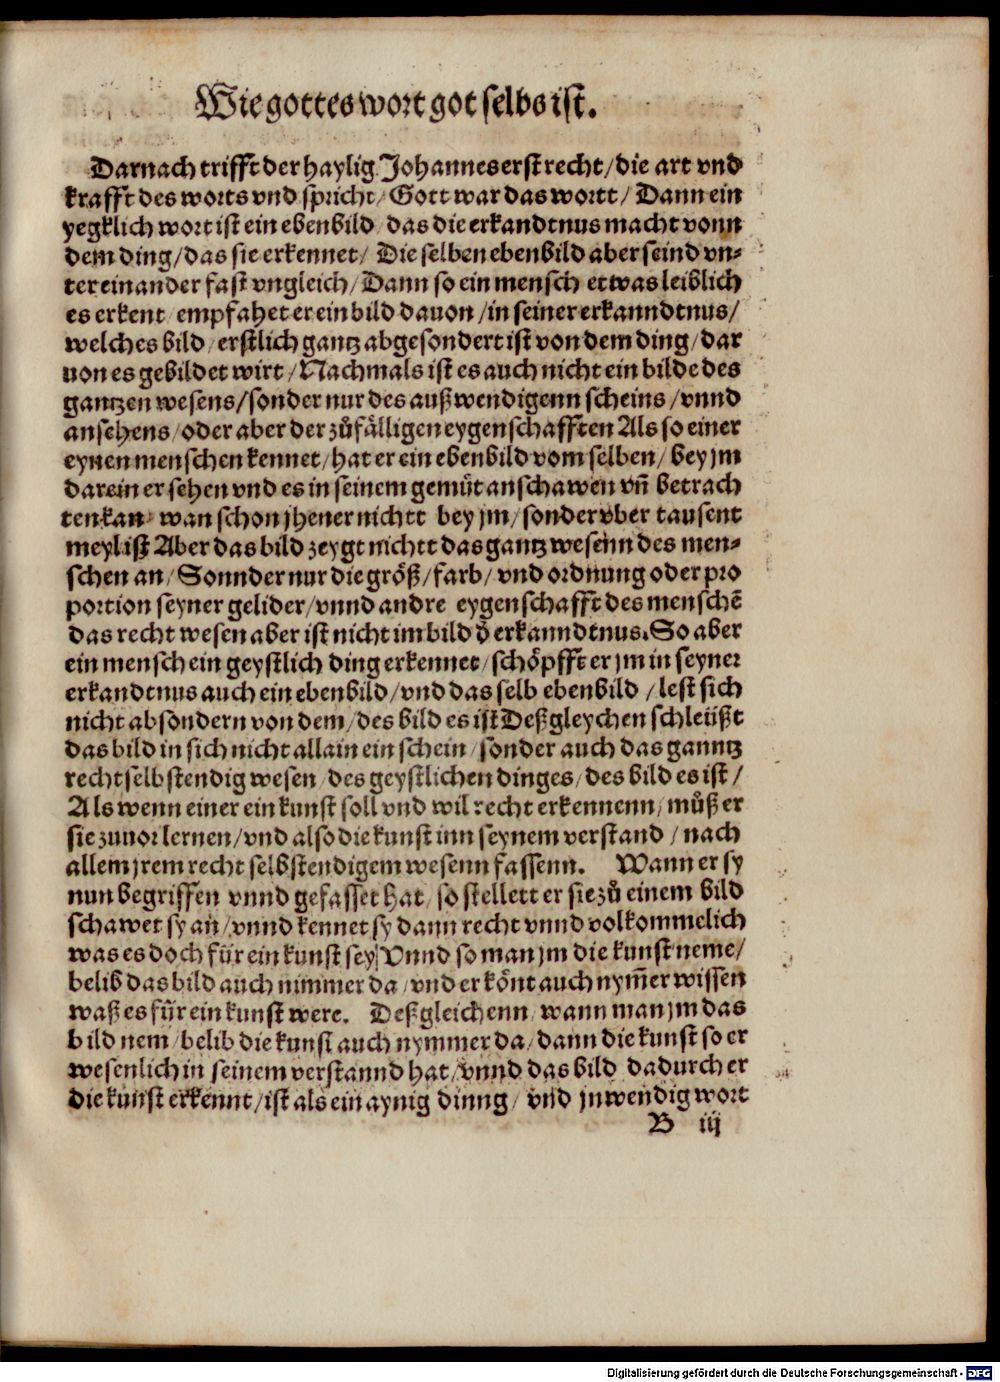 Wie gottes wort got selbs ist.
Darnach trifft der haylig Johannes erst recht/die art vnd
krafft des worts vnd spricht/Gott war das wortt/Dann ein
yegklich wort ist ein ebenbild das die erkandtnus macht vonn
dem ding/das sie erkennet/Die selben ebenbild aber seind vn⸗
ter einander fast vngleich/Dann so ein mensch etwas leiblich
es erkent empfahet er ein bild dauon/in seiner erkanndtnus/
welches bild/erstlich gantz abgesondert ist von dem ding/dar
uon es gebildet wirt/Nachmals ist es auch nicht ein bilde des
gantzen wesens/sonder nur des außwendigenn scheins/vnnd
ansehens/oder aber der zůfälligen eygenschafften Als so einer
eynen menschen kennet/hat er ein ebenbild vom selben/bey jm
darein er sehen vnd es in seinem gemüt anschawen vñ betrach
ten kan/wan schon jhener nichtt bey jm/sonder vber tausent
meyl ist Aber das bild zeygt nichtt das gantz wesenn des men⸗
schen an/Sonnder nur die größ/farb/vnd ordnung oder pro
portion seyner gelider/vnnd andre eygenschafft des menschē
das recht wesen aber ist nicht im bild ď erkanndtnus. So aber
ein mensch ein geystlich ding erkennet/schöpfft er jm in seyner
erkandtnus auch ein ebenbild/vnd das selb ebenbild/lest sich
nicht absondern von dem/des bild es ist Deßgleychen schleüßt
das bild in sich nicht allain ein schein/sonder auch das ganntz
recht selbstendig wesen/des geystlichen dinges/des bild es ist/
Als wenn einer ein kunst soll vnd wil recht erkennenn/můß er
sie zuuor lernen/vnd also die kunst inn seynem verstand/nach
allem jrem recht selbstendigem wesenn fassenn. Wann er sy
nun begriffen vnnd gefasset hat/so stellett er sie zů einem bild
schawet sy an/vnnd kennet sy dann recht vnnd volkommelich
was es doch für ein kunst sey/Vnnd so man jm die kunst neme/
belib das bild auch nimmer da/vnd er könt auch nym̃er wissen
waß es für ein kunst were. Deßgleichenn/wann man jm das
bild nem/belib die kunst auch nymmer da/dann die kunst so er
wesenlich in seinem verstannd hat/vnnd das bild dadurch er
die kunst erkennt/ist als ein aynig dinng/vnd jnwendig wort
B iij
Digitalisierung gefördert durch die Deutsche Forschungsgemeinschaft - DFG